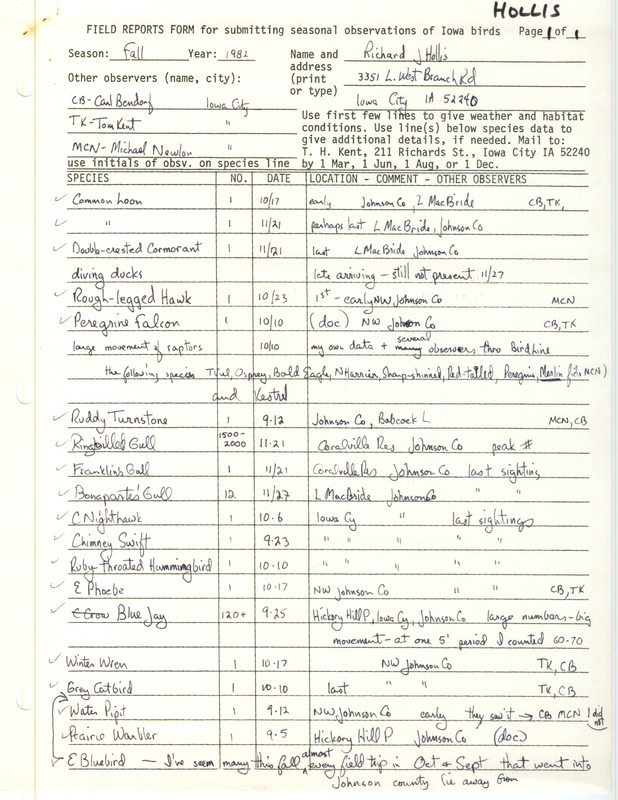 HOLLIS
FIELD REPORTS FORM for submitting seasonal observations of Iowa birds Page 1 of 1
Season: Fall Year: 1982 Name and Richard J Hollis
address
Other observers (name, city): (print 3351 L. West Branch Rd
or type)
CB-Carl Bendorf Iowa City Iowa City IA 52240
TK-Tom Kent " Use first few lines to give weather and habitat
conditions. Use line(s) below species data to
give additional details, if needed. Mail to:
MCN- Michael Newlon " T. H. Kent, 211 Richards St., Iowa City IA 52240
use initials of obsv. on species line by 1 Mar, 1 Jun, 1 Aug, or 1 Dec.
SPECIES NO. DATE LOCATION - COMMENT - OTHER OBSERVERS
Common Loon 1 10/17 early Johnson Co, L MacBride CB, TK,
" 1 11/21 perhaps last L MacBride, Johnson Co
Doubl-crested Cormorant 1 11/21 last L MacBride Johnson Co
diving ducks late arriving - still not present 11/27
Rough-legged Hawk 1 10/23 1st - early NW Johnson Co MCN
Peregrine Falcon 1 10/10 (doc) NW Johnson Co CB, TK
large movement of raptors 10/10 my own data + several many observers thro Birdline
the following species TVul, Osprey, Bald Eagle, N Harrier, Sharp-shinned, Red-tailed, Peregrin, Merlin (fide MCN)
and Kestrel
Ruddy Turnstone 1 9-12 Johnson Co, Babcock L MCN, CB
Ringbilled Gull 1500-2000 11-21 Coralville Res Johnson Co peak #
Franklin's Gull 1 11/21 Coralville Res Johnson Co last sighting
Bonaparte's Gull 12 11/27 L MacBride Johnson Co " "
C Nighthawk 1 10-6 Iowa Cy " last sightings
Chimney Swift 1 9-23 " " " "
Ruby-throated Hummingbird 1 10-10 " " " "
E Phoebe 1 10-17 NW Johnson Co " " CB, TK
C Crow Blue Jay 120+ 9-25 Hickory Hill P, Iowa Cy, Johnson Co large numbers-big
movement - at one 5' period I counted 60-70
Winter Wren 1 10-17 NW Johnson Co TK, CB
Grey Catbird 1 10-10 last " " TK, CB
Water Pipit 1 9-12 NW Johnson Co early they saw't → CB MCN I did not
Prairie Warbler 1 9-5 Hickory Hill P Johnson Co (doc)
E Bluebird - I've seem many this fall almost every field trip in Oct & Sept that went into
Johnson county (ie away from